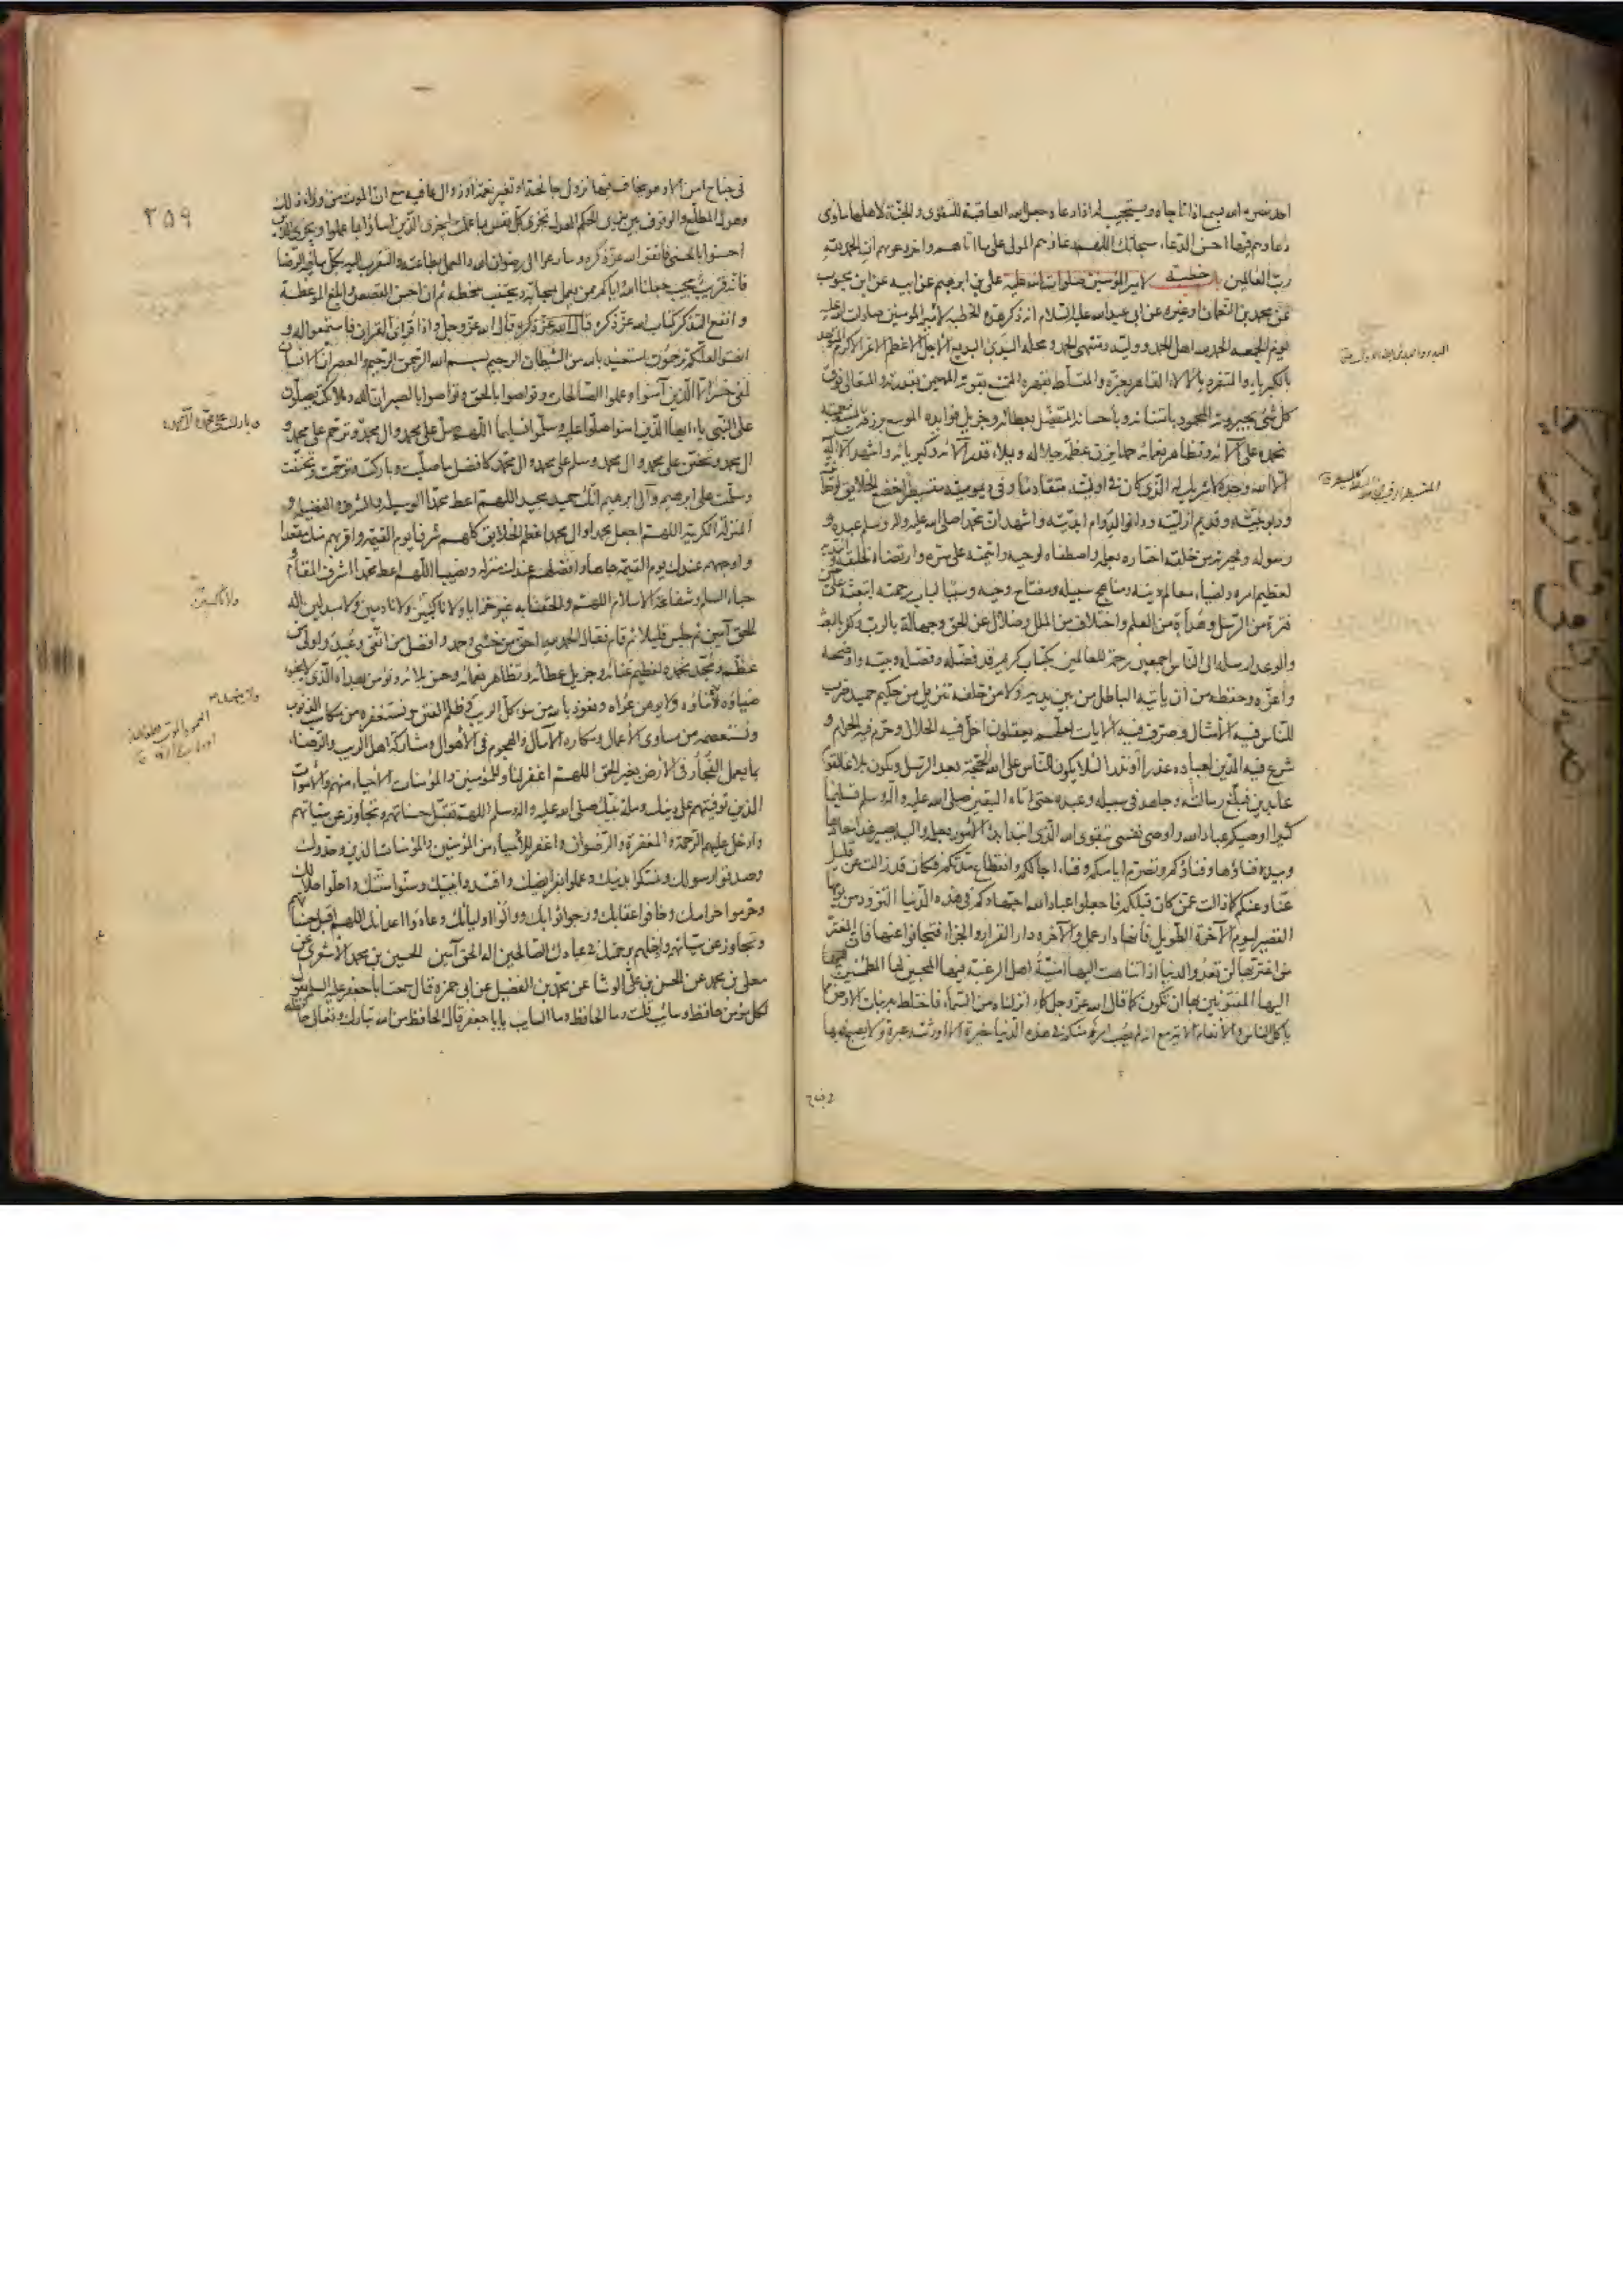 احد نصره الله يسمع اذا ناجاه ويستجيب له اذا دعاه وجعل الله العاقبة للتقوى والجنة لاهلها مأوى
دعاؤهم فيها احسن الدعاء سبحانك اللهم دعاؤهم المولى على ما اتاهم واخر دعويهم ان الحمد لله
رب العالمين خطبة لامير المؤمنين صلوات الله عليه على بن ابرهيم عن ابيه عن ابن محبوب
عن محمد بن النعمان او غيره عن ابى عبد الله عليه السلام انه ذكر هذه الخطبة لامير المؤمنين صلوات الله عليه
يوم الجمعة الحمد لله اهل الحمد ووليه ومنتهى الحمد ومحله البدئ البديع الاجل الاعظم الاعز الاكرم المتوحد
بالكبرياء والمتفرد بالالاء القاهر بعزه والمتسلط بقهره الممتنع بقوته المهيمن بقدرته والمتعالى فوق
كل شئ بجبروته المحمود بامتنانه وباحسانه المتفضل بعطائه وجزيل فوايده الموسع برزقه المسبغ بنعمته
نحمده على آلائه وتظاهر نعمائه حمدا يزن عظمة جلاله ويملاء قدر آلائه وكبريائه واشهد ان لا اله
الا الله وحده لا شريك له الذى كان فى اوليته متقادما وفى ديموميته متسيطرا خضع الخلايق لوحدانيته
وربوبيته وقديم ازليته ودانوا لدوام ابديته واشهد ان محمدا صلى الله عليه واله وسلم عبده و
رسوله وخيرته من خلقه اختاره بعلمه واصطفاه لوحيه وائتمنه على سره وارتضاه لخلقه وانتدبه
لعظيم امره ولضياء معالم دينه ومناهج سبيله ومفتاح وحيه وسببا لباب رحمته ابتعثه على حين
فترة من الرسل وهدأة من العلم واختلاف من الملل وضلال عن الحق وجهالة بالرب وكفر بالبعث
والوعد ارسله الى الناس اجمعين رحمة للعالمين بكتاب كريم قد فضله وفصله وبينه واوضحه
واعزه وحفظه من ان يأتيه الباطل من بين يديه ولا من خلفه تنزيل من حكيم حميد ضرب
للناس فيه الامثال وصرف فيه الآيات لعلهم يعقلون احل فيه الحلال وحرم فيه الحرام و
شرع فيه الدين لعباده عذرا او نذرا لئلا يكون للناس على الله حجة بعد الرسل ويكون بلاغا لقوم
عابدين فبلغ رسالته وجاهد فى سبيله وعبده حتى اتاه اليقين صلى الله عليه واله وسلم تسليما
كثيرا اوصيكم عباد الله واوصى نفسى بتقوى الله الذى ابتدأ بدئ الامور بعلمه واليه يصير غدا ميعادها
وبيده فناؤها وفناؤكم وتصرم ايامكم وفناء اجالكم وانقطاع مدتكم فكان قد زالت عن قليل
عنا وعنكم كما زالت عمن كان قبلكم فاجعلوا عباد الله اجتهادكم فى هذه الدنيا التزود من يومها
القصير ليوم الآخرة الطويل فانها دار عمل والآخرة دار القرار والجزاء فتجافوا عنها فان المغتر
من اغتر بها لن تعدو الدنيا اذا تناهت اليها امنية اهل الرغبة فيها المحبين لها المطمئنين
اليها المفتونين بها ان تكون كما قال الله عز وجل كماء انزلناه من السماء فاختلط به نبات الارض مما
يأكل الناس والانعام الآية مع انه لم يصب امرؤ منكم فى هذه الدنيا حبرة الا اورثته عبرة ولا يصبح فيها
فى جناح
٢٥٩
فى جناح امن الا وهو يخاف فيها نزول جائحة او تغير نعمة او زوال عافية مع ان الموت من وراء ذلك
وهول المطلع والوقوف بين يدى الحكم العدل تجزى كل نفس بما عملت ليجزى الذين اساؤا بما عملوا ويجزى الذين
احسنوا بالحسنى فاتقوا الله عز ذكره وسارعوا الى رضوان الله والعمل بطاعته والتقرب اليه بكل ما فيه الرضا
فانه قريب مجيب جعلنا الله واياكم ممن يعمل بمحابه ويجتنب سخطه ثم ان احسن القصص وابلغ الموعظة
وانفع التذكر كتاب الله عز ذكره قال الله عز وجل واذا قرئ القران فاستمعوا له و
انصتوا لعلكم ترحمون استعيذ بالله من الشيطان الرجيم بسم الله الرحمن الرحيم والعصر ان الانسان
لفى خسر الا الذين آمنوا وعملوا الصالحات وتواصوا بالحق وتواصوا بالصبر ان الله وملائكته يصلون
على النبى يا ايها الذين امنوا صلوا عليه وسلموا تسليما اللهم صل على محمد وال محمد وترحم على محمد و
ال محمد وتحنن على محمد وال محمد وسلم على محمد وال محمد كافضل ما صليت وباركت وترحمت وتحننت
وسلمت على ابرهيم وآل ابرهيم انك حميد مجيد اللهم اعط محمدا الوسيلة والشرف والفضيلة و
المنزلة الكريمة اللهم اجعل محمدا وال محمد اعظم الخلايق كلهم شرفا يوم القيمة واقربهم منك مقعدا
واوجههم عندك يوم القيمة جاها وافضلهم عندك منزلة ونصيبا اللهم اعط محمدا اشرف المقام و
حباء السلم وشفاعة الاسلام اللهم والحقنا به غير خزايا ولا ناكبين ولا نادمين ولا مبدلين اله
الحق آمين ثم جلس قليلا ثم قام فقال الحمد لله احق من خشى وحمد وافضل من اتقى وعبد واولى من
عظم ومجد نحمده لعظيم غنائه وجزيل عطائه وتظاهر نعمائه وحسن بلائه ونؤمن بهداه الذى لا يخبو
ضياؤه ولا يوهن عراه ونعوذ بالله من سوء كل الريب وظلم الفتن ونستغفره من مكاسب الذنوب
ونستعصمه من مساوى الاعمال ومكاره الآمال والهجوم فى الاهوال ومشاركة اهل الريب والرضاء
بما يعمل الفجار فى الارض بغير الحق اللهم اغفر لنا وللمؤمنين والمؤمنات الاحياء منهم والاموات
الذين توفيتهم على دينك وملة نبيك صلى الله عليه واله وسلم اللهم تقبل حسناتهم وتجاوز عن سيئاتهم
وادخل عليهم الرحمة والمغفرة والرضوان واغفر للأحياء من المؤمنين والمؤمنات الذين وحدوك
وصدقوا رسولك وتمسكوا بدينك وعملوا بفرايضك واقتدوا بنبيك وسنوا سنتك واحلوا حلالك
وحرموا حرامك وخافوا عقابك ورجوا ثوابك ووالوا اوليائك وعادوا اعدائك اللهم اقبل حسناتهم
وتجاوز عن سيئاتهم وادخلهم برحمتك فى عبادك الصالحين اله الحق آمين الحسين بن محمد الاشعرى عن
معلى بن محمد عن الحسن بن على الوشا عن محمد بن الفضيل عن ابى حمزة قال سمعت ابا جعفر عليه السلام يقول
لكل مؤمن حافظ وسائب قلت وما الحافظ وما السايب يا ابا جعفر قال الحافظ من الله تبارك وتعالى حافظ
وبارك على محمد وآل محمد
ولا ناكثين